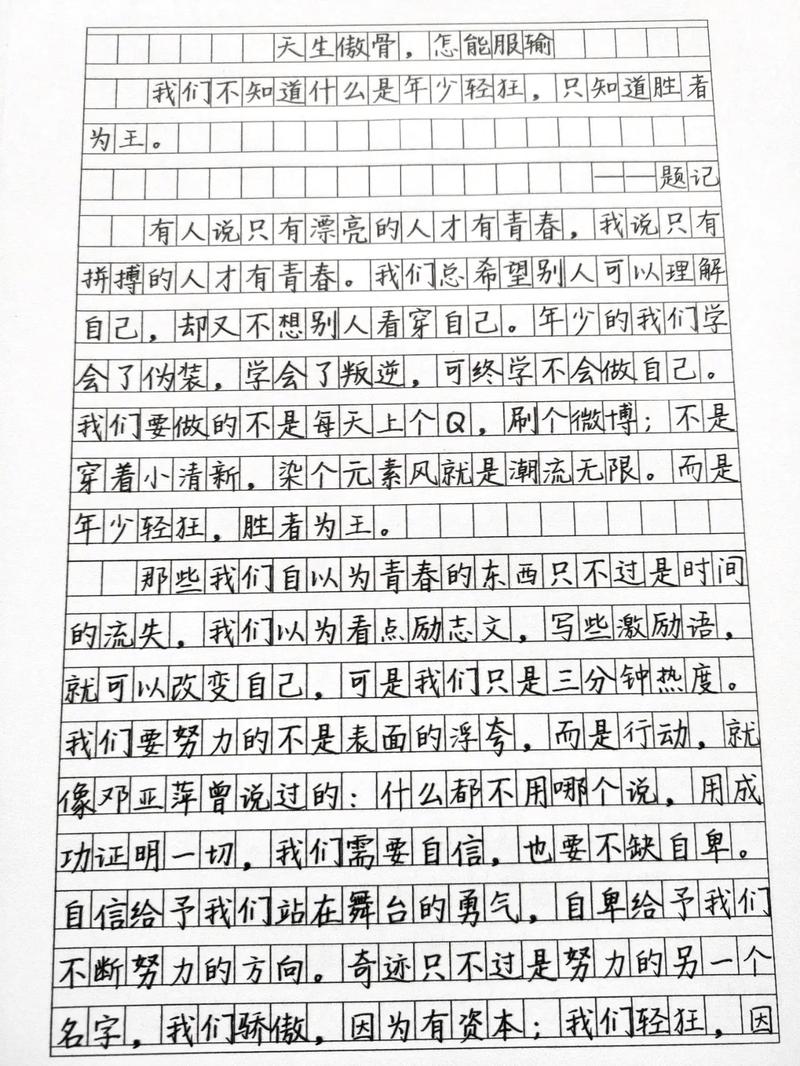 天生傲骨，怎能服输
我们不知道什么是年少轻狂，只知道胜者
为王。
——题记
有人说只有漂亮的人才有青春，我说只有
拼搏的人才有青春。我们总希望别人可以理解
自己，却又不想别人看穿自己。年少的我们学
会了伪装，学会了叛逆，可终学不会做自己。
我们要做的不是每天上个Q，刷个微博；不是
穿着小清新，染个元素风就是潮流无限。而是
年少轻狂，胜者为王。
那些我们自以为青春的东西只不过是时间
的流失，我们以为看点励志文，写些激励语，
就可以改变自己，可是我们只是三分钟热度。
我们要努力的不是表面的浮夸，而是行动，就
像邓亚萍曾说过的：什么都不用哪个说，用成
功证明一切，我们需要自信，也要不缺自卑。
自信给予我们站在舞台的勇气，自卑给予我们
不断努力的方向。奇迹只不过是努力的另一个
名字，我们骄傲，因为有资本；我们轻狂，因